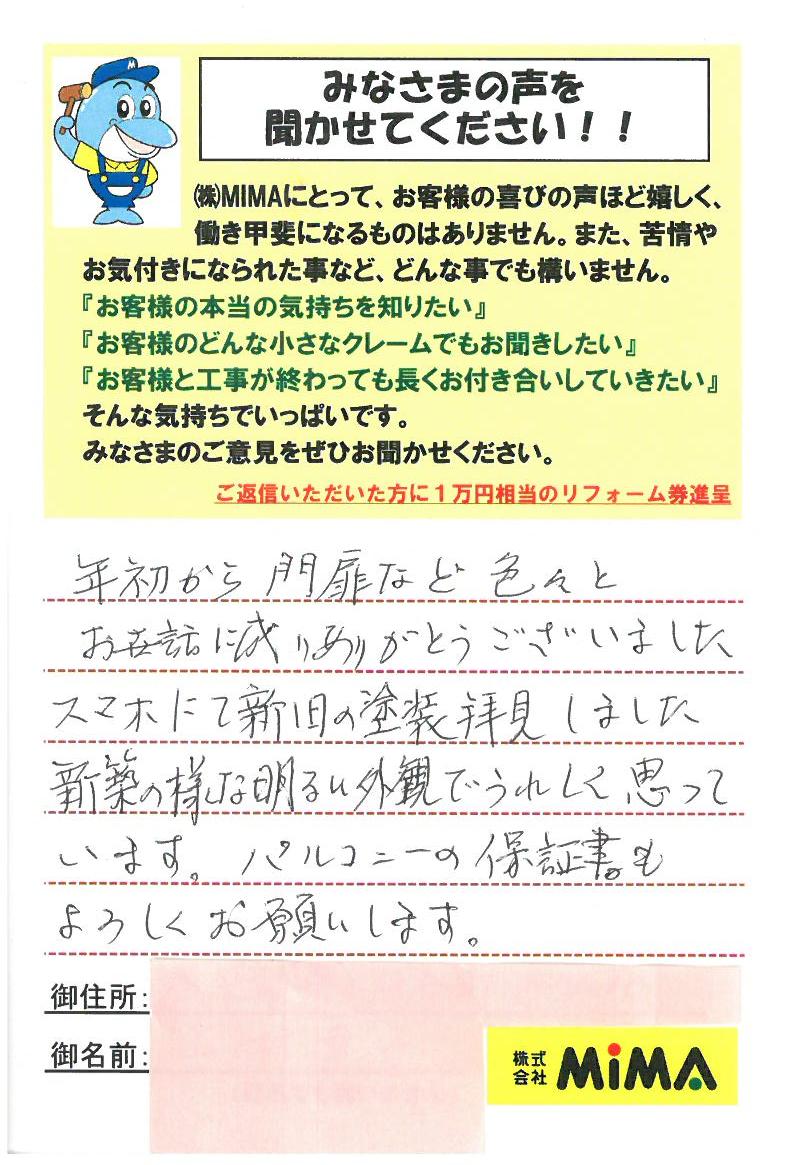 みなさまの声を
聞かせてください！！
㈱MIMAにとって、お客様の喜びの声ほど嬉しく、
働き甲斐になるものはありません。また、苦情や
お気付きになられた事など、どんな事でも構いません。
『お客様の本当の気持ちを知りたい』
『お客様のどんな小さなクレームでもお聞きしたい』
『お客様と工事が終わっても長くお付き合いしていきたい』
そんな気持ちでいっぱいです。
みなさまのご意見をぜひお聞かせください。
ご返信いただいた方に１万円相当のリフォーム券進呈
年初から門扉など色々と
お世話に成りありがとうございました
スマホにて新旧の塗装拝見しました
新築の様な明るい外観でうれしく思って
います。バルコニーの保証書も
よろしくお願いします。
御住所：
御名前：
株式会社 MiMA
M